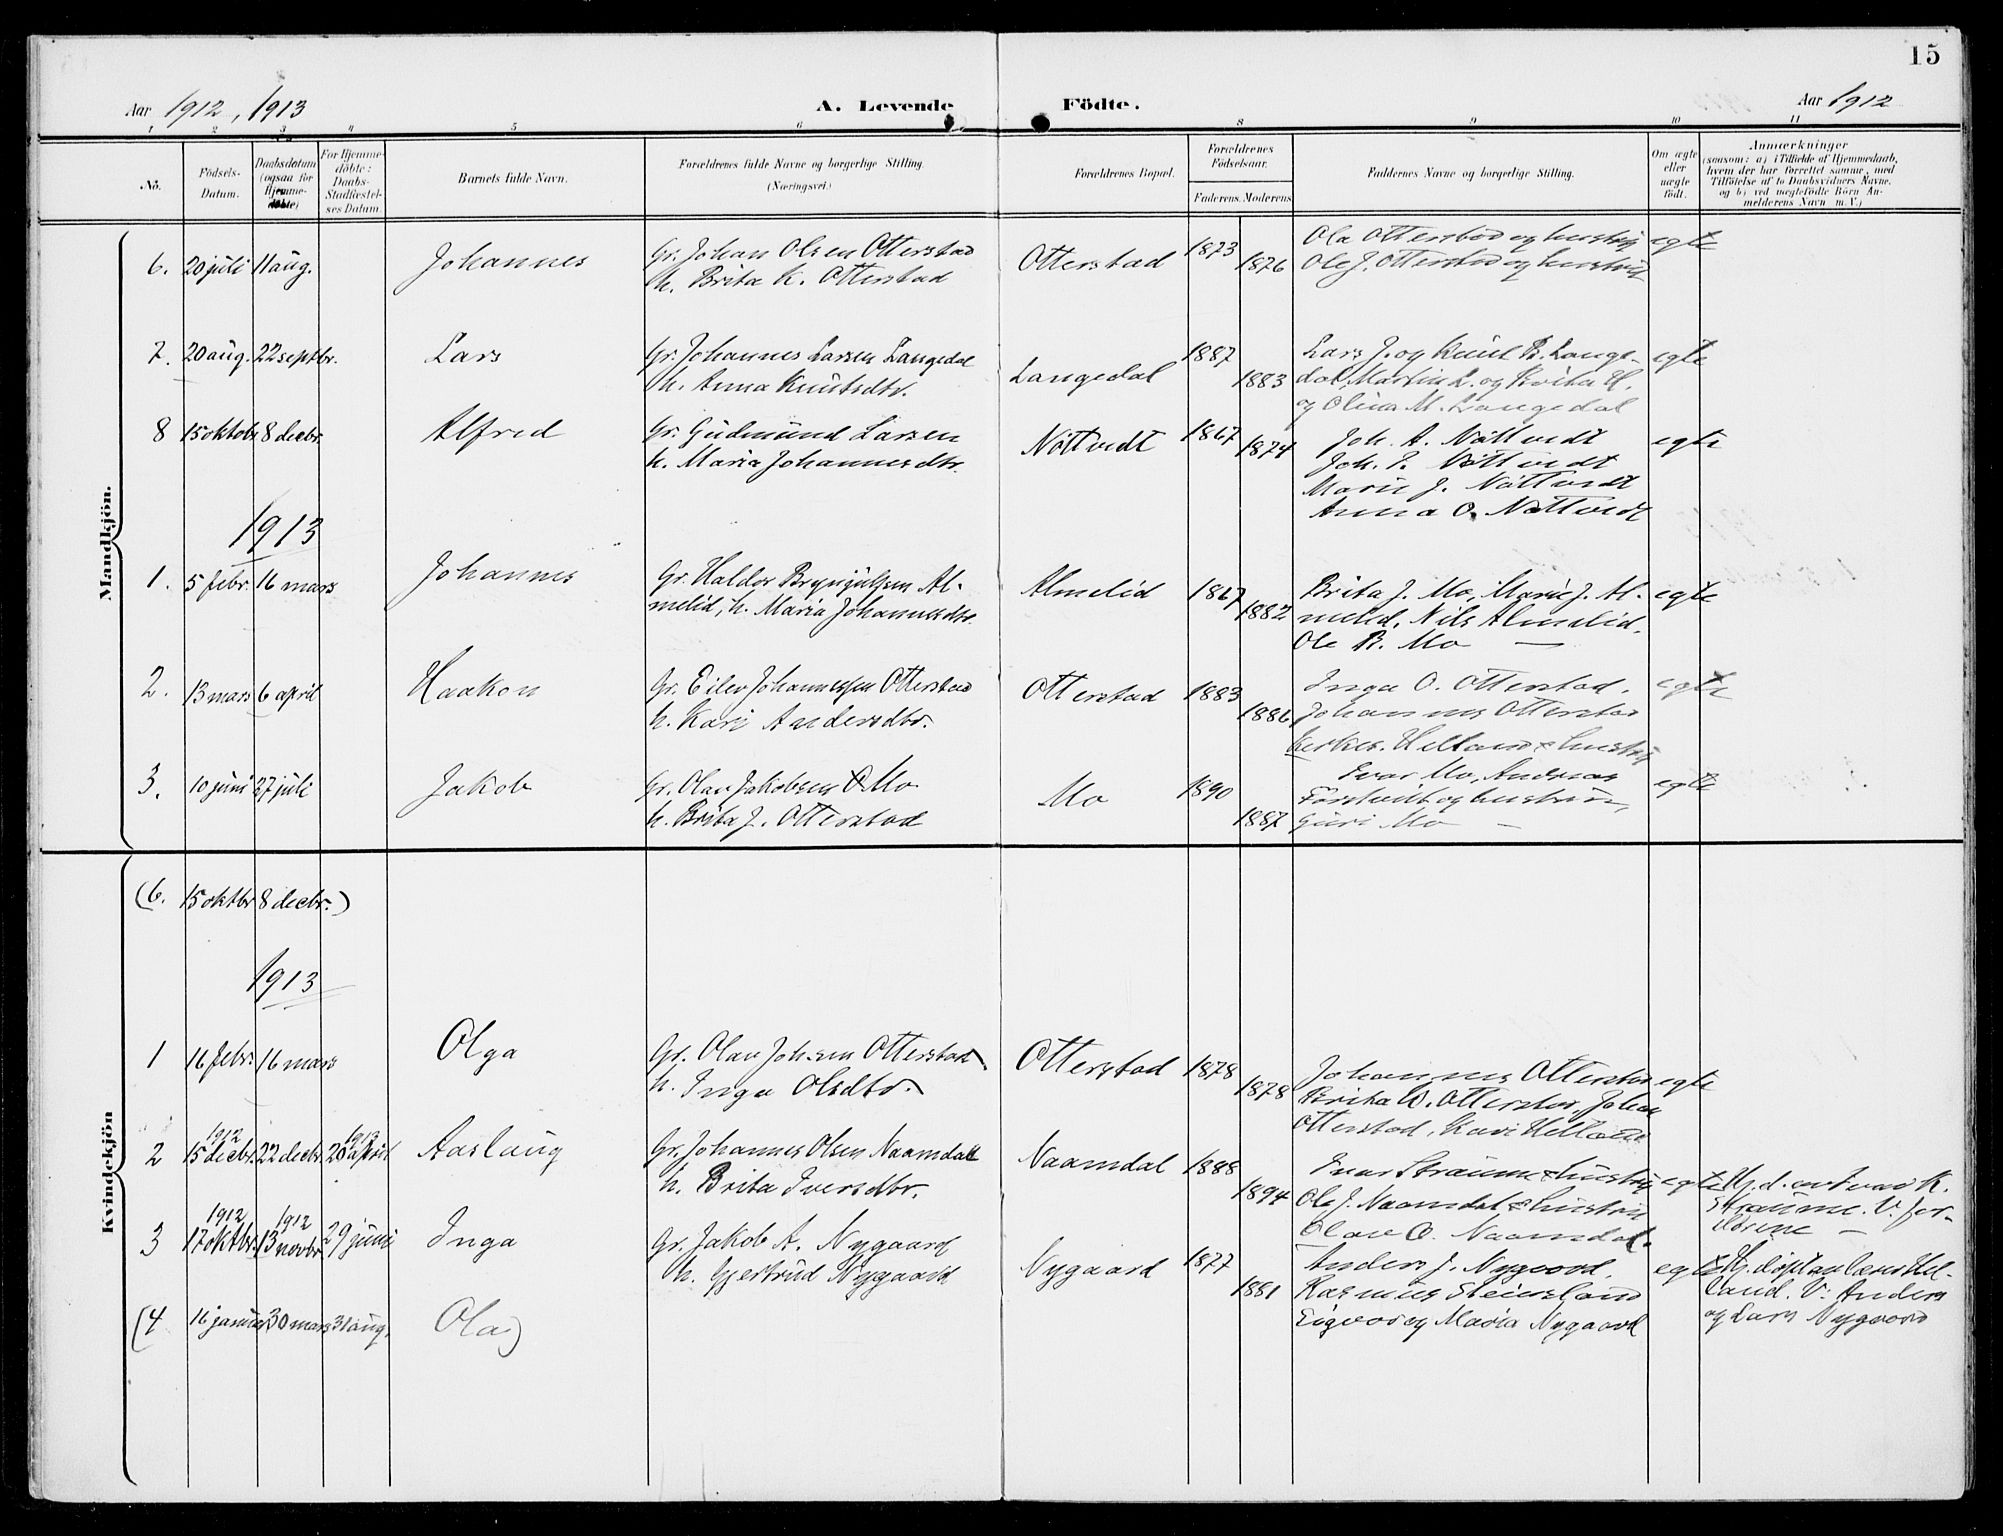 15
Aar 1912, 1913
A. Levende Födte.
Aar 1912
1 2 3 4 5 6 8 9 10 11
No.
Födsels-Datum.
Daabsdatum (ogsaa for Hjemme-döbte)
For Hjemme-döbte: Daabs-Stadfæstel-ses Datum
Barnets fulde Navn.
Forældrenes fulde Navne og borgerlige Stilling.
(Næringsvei.)
Forældrenes Bopæl.
Forældrenes Födselsaar.
Faderens. Moderens
Faddernes Navne og borgerlige Stilling.
Om ægte eller uægte födt.
Anmærkninger
(saasom: a) i Tilfælde af Hjemmedaab,
hvem der har forrettet samme, med
Tilföielse af to Daabsvidners Navne,
og b) ved uægtefödte Börn An-
melderens Navn m. V.)
Mandkjön.
6. 20 juli 11 aug. Johannes Gr. Johan Olsen Otterstad Otterstad 1873 Ola Otterstad og hustru egte
h. Brita K. Otterstad 1876 Ole J. Otterstad og hustru
7. 20 aug. 22 septbr. Lars Gr. Johannes Larsen Langedal Langedal 1887 Lars J. og Knut B. Lange- egte
h. Anna Knutsdtr. 1883 dal, Martin L. og Brita H.
og Olina M. Langedal
8 15 oktob 8 decbr. Alfred Gr. Gudmund Larsen Nöttvedt 1867 Joh. A. Nöttvedt egte
h. Maria Johannesdtr. 1874 Joh. P. Nöttvedt
Marie J. Nöttvedt
Anna O. Nöttvedt
1913
1. 5 febr. 16 mars Johannes Gr. Haldor Brynjulfsen Al- Almelid 1867 Brita J. Mo, Marie J. Al- egte
melid, h. Maria Johannesdtr. 1882 melid, Nils Almelid,
Ole B. Mo —
2. 13 mars 6 april Haakon Gr. Eilev Johannessen Otterstad Otterstad 1883 Inga O. Otterstad, egte
h. Kari Andersdtr. 1886 Johannes Otterstad
Helland & hustru
3. 10 juni 27 juli Jakob Gr. Olav Jakobsen Mo Mo 1890 Ivar Mo, Andreas egte
h. Brita J. Otterstad 1887 og hustru,
Guri Mo —
Kvindekjön
(6. 15 oktbr 8 decbr.)
1913
1 16 febr. 16 mars Olga Gr. Olav Johsen Otterstad Otterstad 1878 Johannes Otterstad egte
h. Inga Olsdtr. 1878 Brita O. Otterstad, Johan
Otterstad, Kari Helland
2 1912 15 decbr. 22 decbr. 1913 20 april Aaslaug Gr. Johannes Olsen Naamdal Naamdal 1888 Ivar Straume & hustru egte Hj. d. av Ivar K.
h. Brita Iversdtr. 1894 Ole J. Naamdal & hustru Straume. V. for-
Olav O. Naamdal. eldrene —
3 1912 17 oktbr. 1912 13 novbr. 29 juni Inga Gr. Jakob A. Nygaard Nygaard 1877 Anders J. Nygaard, egte Hj. döpt av lærer Hel-
h. Gjertrud Nygaard 1881 Rasmus Steinsland land. V: Anders
Eigvor og Maria Nygaard og Lars Nygaard
(4 16 januar 30 mars 31 aug. Ola)